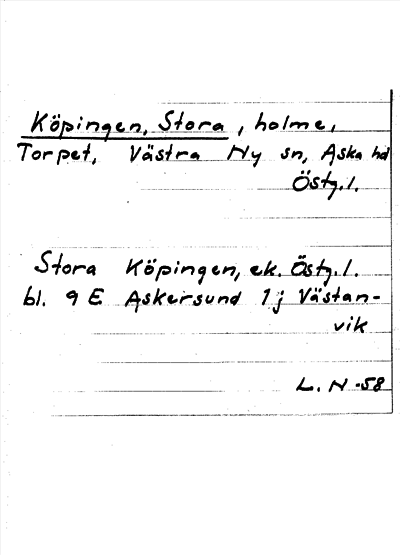 Köpingen, Stora, holme,
Torpet, Västra Ny sn, Aska hd
Östg.l.
Stora Köpingen, ek. Östg.l.
bl. 9 E Askersund 1 j Västan-
vik
L. N -58